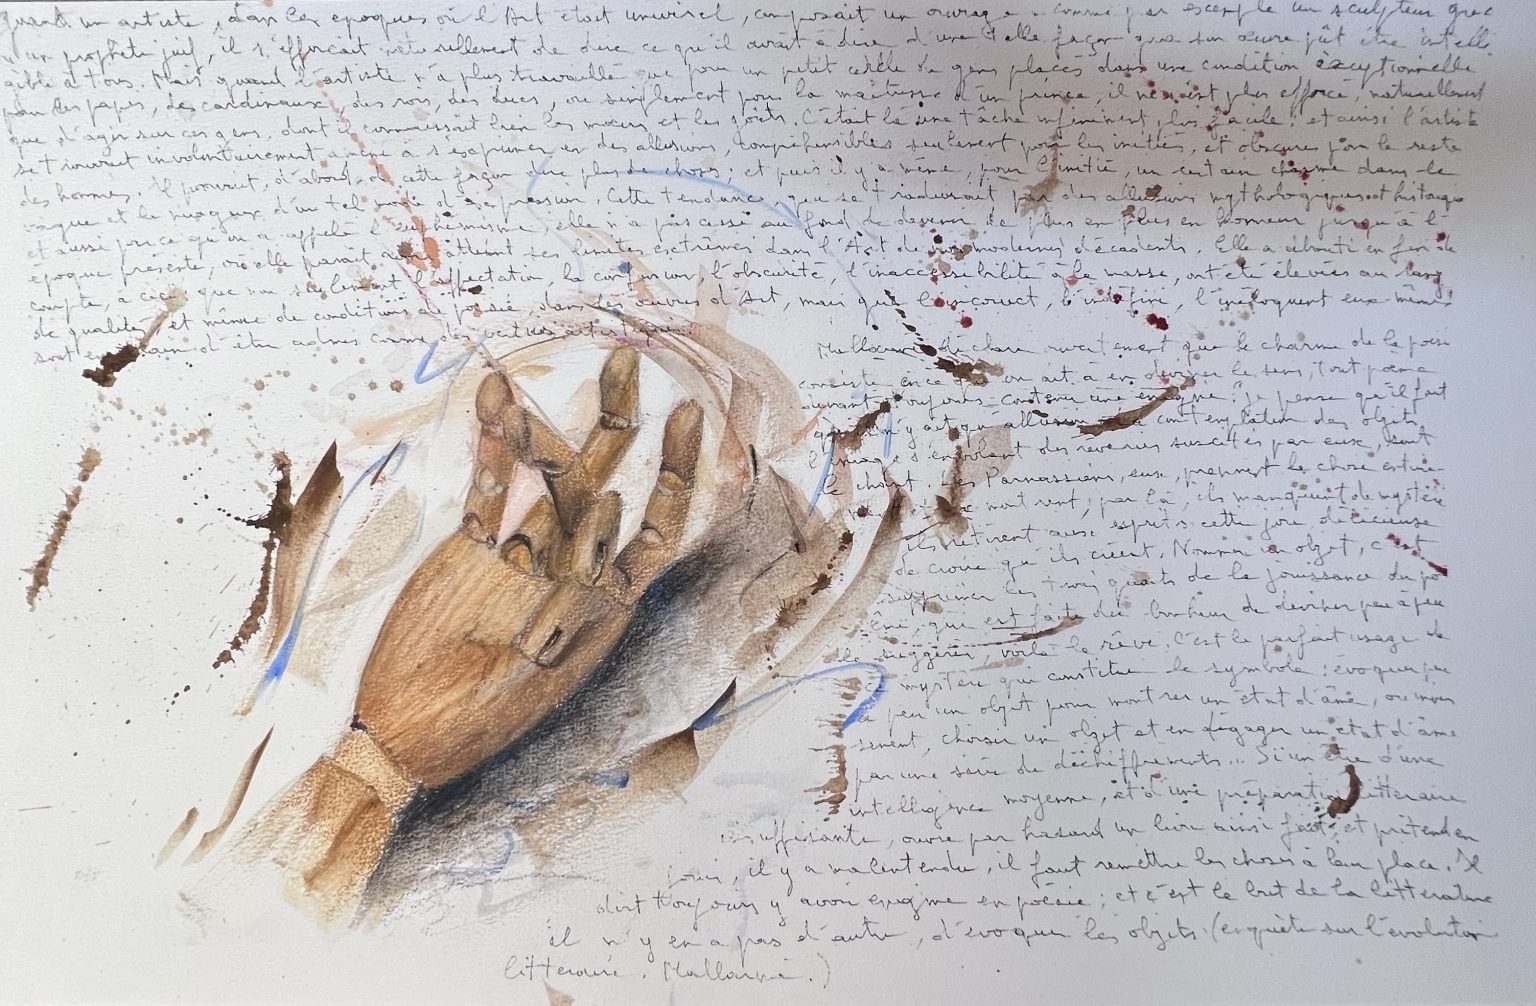 quand un artiste, dans les epoques où l'Art était universel, composait un ouvrage comme par exemple un sculpteur grec
un prophète juif, il s'efforçait naturellement de dire ce qu'il avait à dire d'une telle façon que son œuvre fût être intelli
gible à tous. Mais quand l'artiste n'a plus travaillé que pour un petit cercle de gens placés dans une condition exceptionnelle
pour des papes, des cardinaux, des rois, des ducs, ou simplement pour la maîtresse d'un prince, il ne s'est plus efforcé, naturellement
que d'agir sur ces gens, dont il connaissait bien les mœurs et les goûts. C'était là une tâche infiniment plus facile; et ainsi l'artiste
se trouvait involontairement amené à s'exprimer en des allusions, compréhensibles seulement pour les initiés, et obscures pour le reste
des hommes. Il pouvait, d'abord, de cette façon dire plus de choses; et puis il y a même, pour l'initié, un certain charme dans le
vague et le nuageux d'un tel mode d'expression. Cette tendance, qui se traduisait par des allusions mythologiques et historiques
et aussi par ce qu'on a appelé l'euphémisme, elle n'a pas cessé au fond de devenir de plus en plus en honneur jusqu'à l'
époque présente, où elle paraît avoir atteint ses limites extrêmes dans l'Art de nos modernes décadents. Elle a abouti en fin de
compte, à ceci: que non seulement l'affectation, la confusion, l'obscurité, l'inaccessibilité à la masse, ont été élevées au rang
de qualités, et même de conditions de poésie, dans les œuvres d'Art, mais que l'incorrect, l'indéfini, l'inéloquent eux-mêmes
sont en train d'être admis comme des vertus artistiques.
Mallarmé déclare ouvertement que le charme de la poési
consiste en ce qu'on ait à en deviner le sens, Tout poème
devant toujours contenir une énigme: "je pense qu'il faut
qu'il n'y ait qu'allusion. La contemplation des objets
l'image s'envolant des rêveries suscitées par eux, sont
le chant. Les Parnassiens, eux, prennent la chose entière
montrent; par là, ils manquent de mystère
ils retirent aux esprits cette joie délicieuse
de croire qu'ils créent. Nommer un objet, c'est
supprimer les trois quarts de la jouissance du po
ème, qui est faite du bonheur de deviner peu à peu
le suggérer, voilà le rêve. C'est le parfait usage de
ce mystère qui constitue le symbole: évoquer peu
à peu un objet pour montrer un état d'âme, ou inver
sement, choisir un objet et en dégager un état d'âme
par une série de déchiffrements... Si un être d'une
intelligence moyenne, et d'une préparation littéraire
insuffisante, ouvre par hasard un livre ainsi fait, et prétend en
jouir, il y a malentendu, il faut remettre les choses à leur place. Il
doit toujours y avoir énigme en poésie; et c'est le but de la littérature
il n'y en a pas d'autre, d'évoquer les objets. (enquête sur l'évolution
littéraire. Mallarmé.)